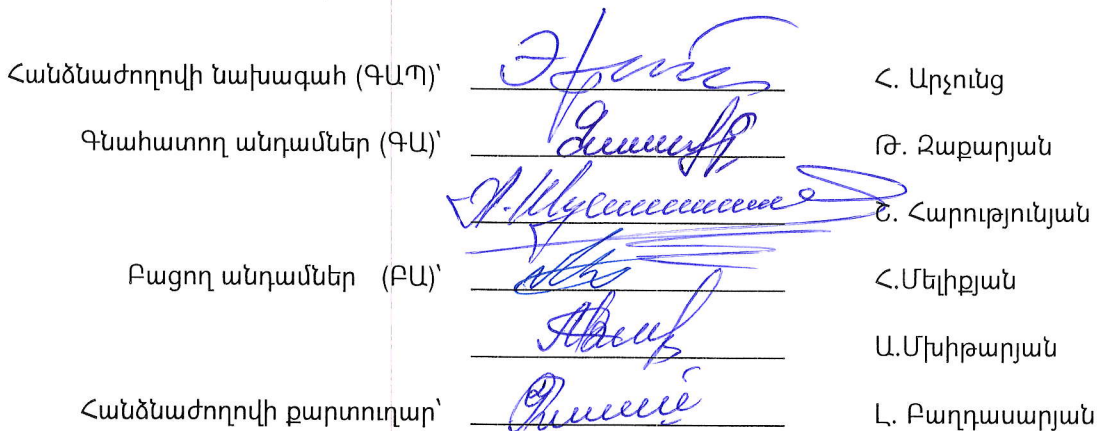 Հանձնաժողովի նախագահ (ԳԱՊ)՝ Հ. Արչունց
Գնահատող անդամներ (ԳԱ)՝ Թ. Զաքարյան
Շ. Հարությունյան
Բացող անդամներ (ԲԱ)՝ Հ.Մելիքյան
Ա.Մխիթարյան
Հանձնաժողովի քարտուղար՝ Լ. Բաղդասարյան